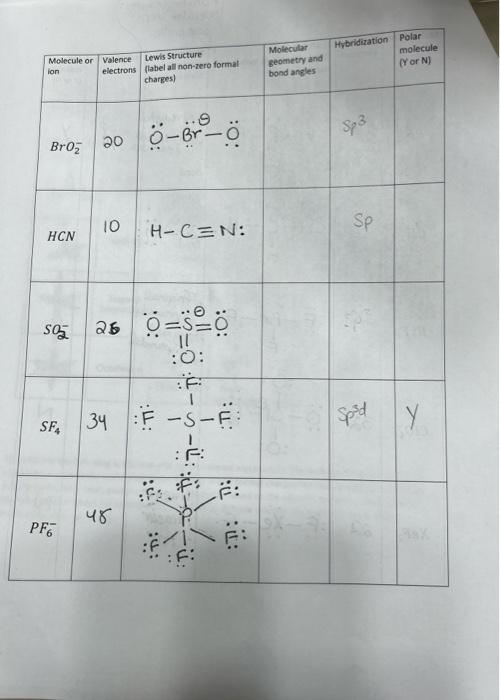 Molecule or ion
Valence electrons
Lewis Structure (label all non-zero formal charges)
Molecular geometry and bond angles
Hybridization
Polar molecule (Y or N)
BrO₂⁻
20
Ö–Br–Ö
⊖
Sp³
HCN
10
H–C≡N:
Sp
26
Ö=S=Ö
⊖
||
:O:
SF₄
34
:F:
:F –S–F:
:F:
Sp³d
Y
PF₆⁻
48
:F: :F: F:
P
:F :F: F: